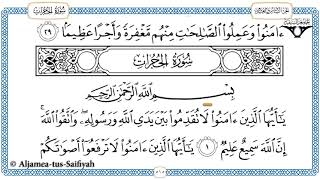 سُورَةُ الحُجُرَات
ءَامَنُواْ وَعَمِلُواْ ٱلصَّٰلِحَٰتِ مِنۡهُم مَّغۡفِرَةٗ وَأَجۡرًا عَظِيمَۢا ٢٩
سُورَةُ الحُجُرَات
بِسۡمِ ٱللَّهِ ٱلرَّحۡمَٰنِ ٱلرَّحِيمِ
يَٰٓأَيُّهَا ٱلَّذِينَ ءَامَنُواْ لَا تُقَدِّمُواْ بَيۡنَ يَدَيِ ٱللَّهِ وَرَسُولِهِۦۖ وَٱتَّقُواْ ٱللَّهَۚ
إِنَّ ٱللَّهَ سَمِيعٌ عَلِيمٞ ١ يَٰٓأَيُّهَا ٱلَّذِينَ ءَامَنُواْ لَا تَرۡفَعُوٓاْ أَصۡوَٰتَكُمۡ
© Aljamea-tus-Saifiyah